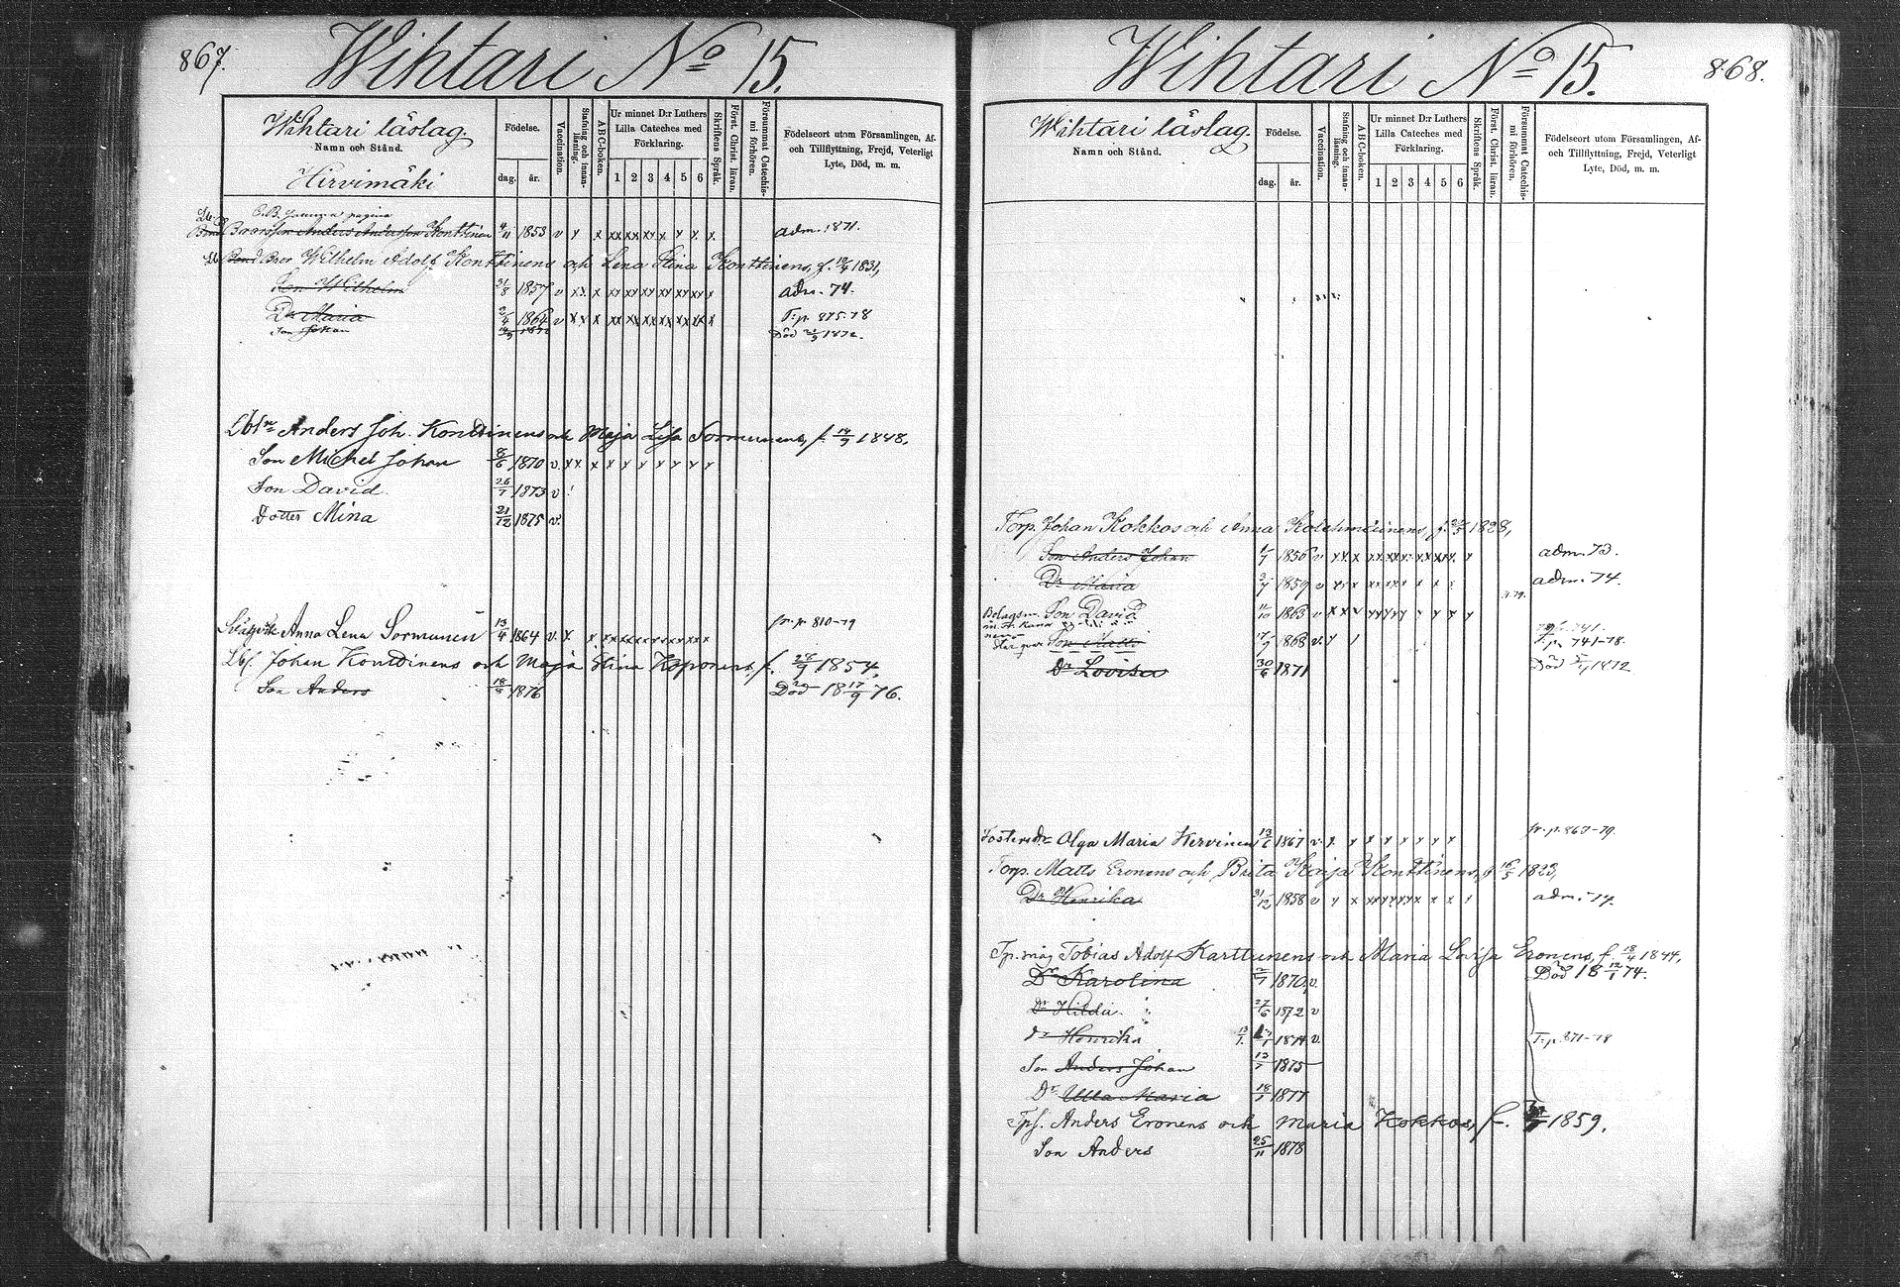 867.
Wihtari No 15.
Wihtari läslag.
Namn och Stånd.
Hirvimäki
Födelse.
dag. år.
Vaccination.
Stafning och innanläsning.
ABC-boken.
Ur minnet D:r Luthers Lilla Cateches med Förklaring.
1 2 3 4 5 6
Skriftens Språk.
Först. Christ. läran.
Försummat Catechismi förhören.
Födelseort utom Församlingen, Af- och Tillflyttning, Frejd, Veterligt Lyte, Död, m. m.
pagina
Anders Andersson Konttinen 1853 v adm. 1871.
Bror Wilhelm Adolf Konttinens och Lena Stina Konttinens, f. 1831,
Son Wilhelm 1857 v adm. 74.
Dr Maria 1864 v T. p. 875-78
Son Johan Död 1872.
Anders Joh. Konttinens och Maja Lisa Sormunens, f. 1848.
Son Michel Johan 8/6 1870 v.
Son David 26/7 1873 v
Dotter Mina 21/12 1875 v.
Anna Lena Sormunen 13/4 1864 v. fr. p. 810-79
Lbf. Johan Konttinens och Maja Stina Koponens, f. 28/9 1854,
Son Anders 1876 Död 18 17/9 76.
868.
Wihtari No 15.
Wihtari läslag.
Namn och Stånd.
Födelse.
dag. år.
Vaccination.
Stafning och innanläsning.
ABC-boken.
Ur minnet D:r Luthers Lilla Cateches med Förklaring.
1 2 3 4 5 6
Skriftens Språk.
Först. Christ. läran.
Försummat Catechismi förhören.
Födelseort utom Församlingen, Af- och Tillflyttning, Frejd, Veterligt Lyte, Död, m. m.
Torp. Johan Kokkos och Anna Kolehmainens, f. 1828,
Son Anders Johan 1856 v adm. 73.
Dr Maria 1859 v adm. 74.
Bolagsm. Son David 11/10 1863 v
Son Matts 17/9 1868 v. T. p. 741-78.
Dr Lovisa 30/6 1871 Död 1872.
Fosterdr Olga Maria Hervinen 1867 v. fr. p. 867-79.
Torp. Matts Eronens och Brita Kaija Konttinens, f. 1823,
Dr Henrika 31/12 1858 v adm. 74.
Tp. måg Tobias Adolf Karttunens och Maria Lovisa Eronens, f. 18/4 1844,
Dr Karolina 1870 v. Död 18 12/1 74.
Dr Hilda 27/6 1872 v
Dr Henrika 1874 v. T. p. 871-78
Son Anders Johan 1875
Dr Ulla Maria 1877
Tps. Anders Eronens och Maria Kokkos, f. 1859.
Son Anders 25/11 1878